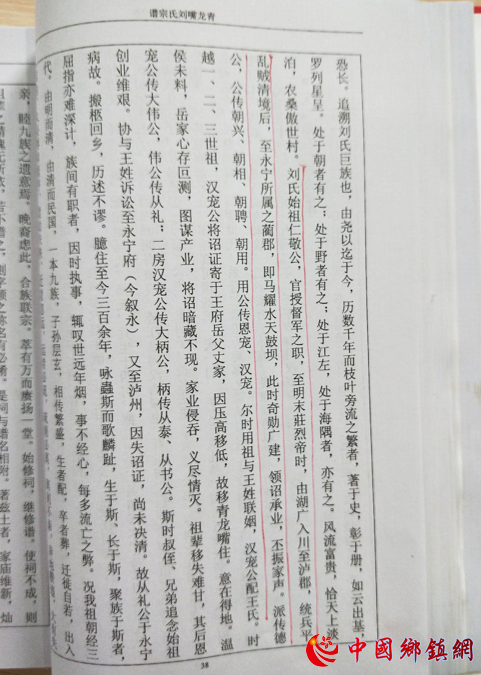 青龙嘴刘氏宗谱
恐长。追溯刘氏巨族也，由尧以迄于今，历数千年而枝叶旁流之繁者，著于史，彰于册，如云出基，
罗列星呈。处于朝者有之；处于野者有之；处于江左，处于海隅者，亦有之。风流富贵，恰天上谈
泊，农桑傲世村。刘氏始祖仁敬公，官授督军之职，至明末莊烈帝时，由湖广入川至泸郡，统兵平
乱贼清境后，至永宁所属之蔺郡，即马耀水天鼓坝，此时奇勋广建，领诏承业，丕振家声。派传德
公，公传朝兴、朝相、朝聘、朝用。用公传恩宠、汉宠。尔时用祖与王姓联姻，汉宠公配王氏。时
越一、二、三世祖，汉宠公将诏证寄于王府岳父丈家，因压高移低，故移青龙嘴住。意在得地。温
侯未料，岳家心存叵测，图谋产业，将诏暗藏不现。家业侵吞，义尽情灭。祖辈移失难甘，其后恩
宠公传大伟公，伟公传从礼；二房汉宠公传大柄公，柄传从泰、从书公。斯时叔侄、兄弟追念始祖
创业维艰。协与王姓诉讼至永宁府（今叙永），又至泸州，因失诏证，尚未决清，故从礼公于永宁
病故。搬柩回乡，历述不谬。臆住至今三百余年，咏螽斯而歌麟趾，生于斯、长于斯，聚族于斯者，
屈指亦难深计，族间有职者，因时执事，辄叹世远年烟，事不经心，每多流亡之弊。况我祖朝经三
代，由明而清，由清而民国，一本九族，子孙层玄，相传繁盛，生者配，卒者葬，迁徙自若，出入
亲，睦九族之遗意焉。晚裔虑此。合族联宗。萃有万而赓扬一堂。始修祠，继修谱。使祠不成，则
是祠与谱名相附。著兹土者，家庙维新，灿
38
中國鄉鎮網